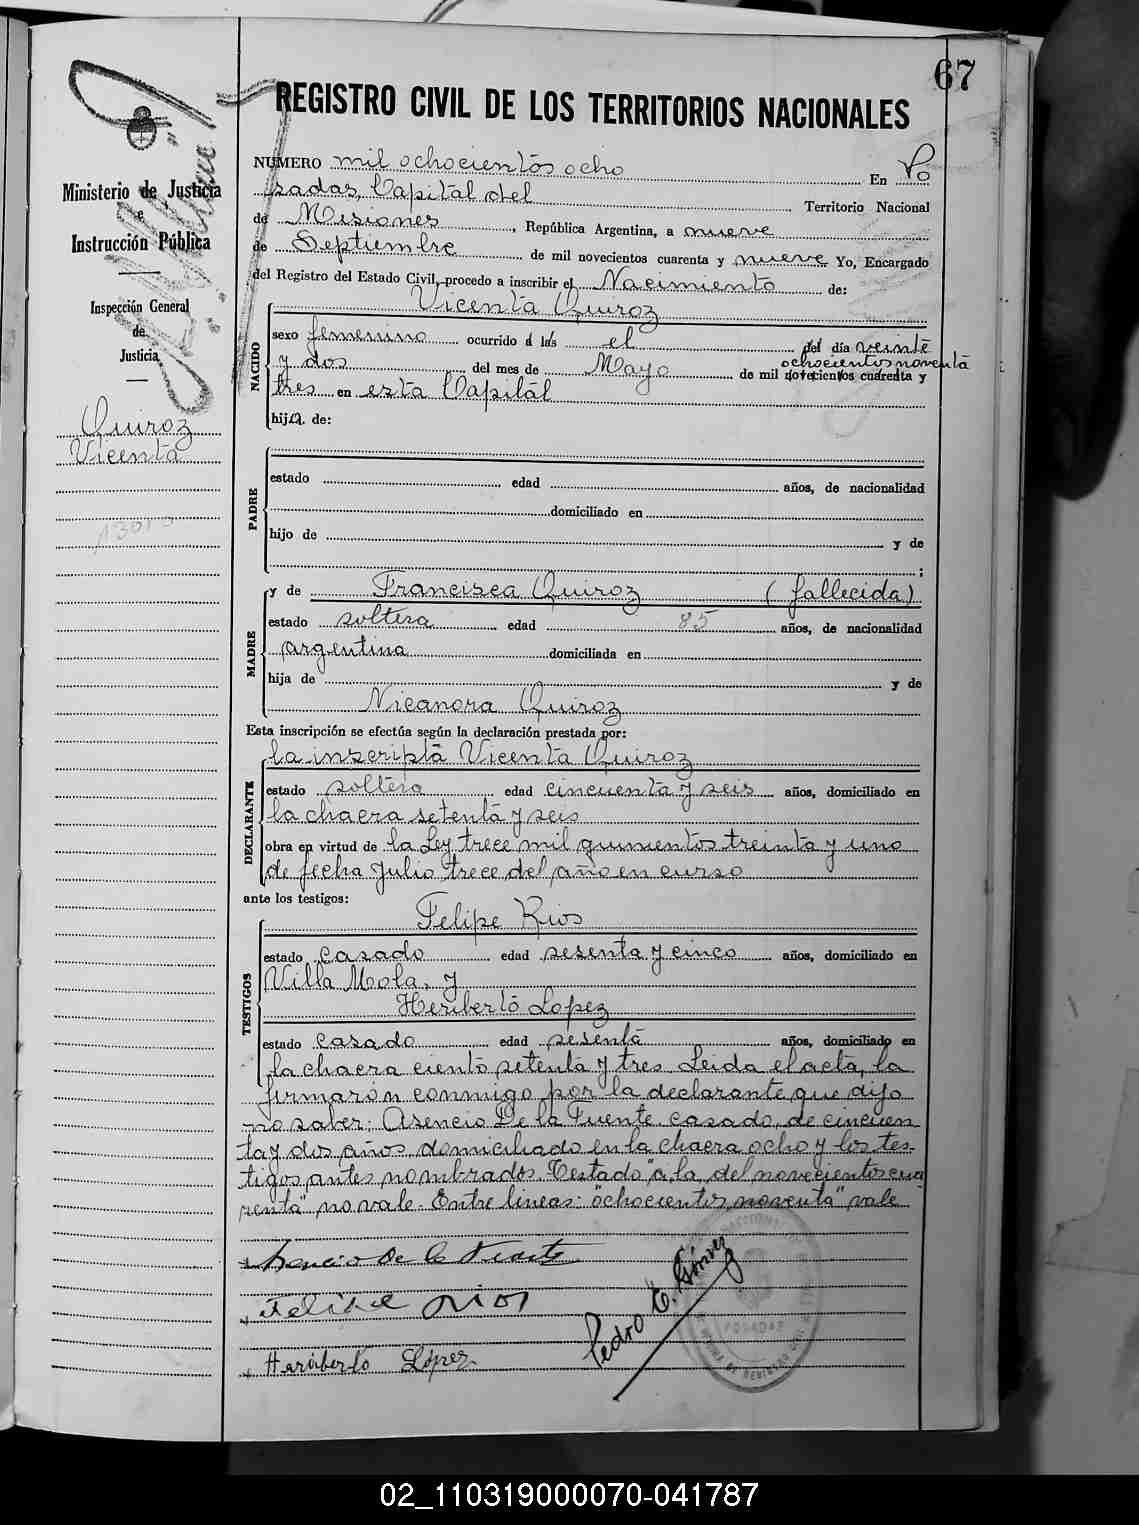 67
REGISTRO CIVIL DE LOS TERRITORIOS NACIONALES
Ministerio de Justicia
e
Instrucción Pública
Inspección General
de
Justicia
Quiroz
Vicenta
NUMERO mil ochocientos ocho En Po
sadas, Capital del Territorio Nacional
de Misiones, República Argentina, a nueve
de Septiembre de mil novecientos cuarenta y nueve Yo, Encargado
del Registro del Estado Civil, procedo a inscribir el Nacimiento de:
Vicenta Quiroz
NACIDO
sexo femenino ocurrido a las el del día veinte
ochocientos noventa
y dos del mes de Mayo de mil novecientos cuarenta y
tres en esta Capital
hija de:
PADRE
estado edad años, de nacionalidad
domiciliado en
hijo de y de
;
MADRE
y de Francisca Quiroz (fallecida)
estado soltera edad 85 años, de nacionalidad
argentina domiciliada en
hija de y de
Nicanora Quiroz
Esta inscripción se efectúa según la declaración prestada por:
DECLARANTE
la inscripta Vicenta Quiroz
estado soltera edad cincuenta y seis años, domiciliado en
la chacra setenta y seis
obra en virtud de la Ley trece mil quinientos treinta y uno
de fecha Julio trece del año en curso
ante los testigos:
TESTIGOS
Felipe Rios
estado casado edad sesenta y cinco años, domiciliado en
Villa Mola, y
Heriberto Lopez
estado casado edad sesenta años, domiciliado en
la chacra ciento setenta y tres. Leida el acta, la
firmaron conmigo por la declarante que dijo
no saber: Asencio De la Fuente casado, de cincuen
ta y dos años, domiciliado en la chacra ocho y los tes-
tigos antes nombrados. Testado "a, la, del novecientos cua
renta" no vale. Entre lineas: "ochocientos, noventa" vale
Asencio de la Fuente
Felipe Rios
Heriberto López
Pedro E. Gómez
POSADAS
02_110319000070-041787